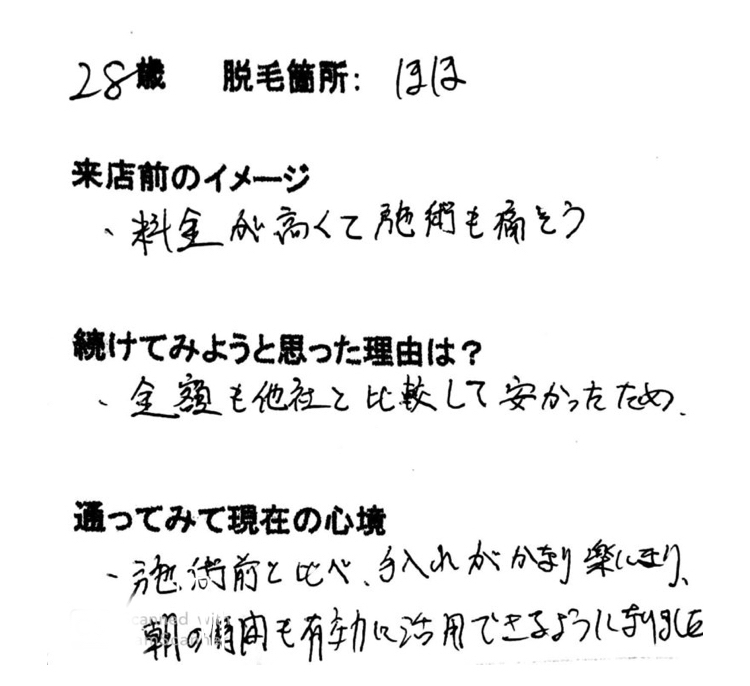 28歳　脱毛箇所: ほほ
来店前のイメージ
、料金が高くて施術も痛そう
続けてみようと思った理由は？
、金額も他社と比較して安かったため.
通ってみて現在の心境
、施術前と比べ、手入れがかなり楽になり、
朝の時間も有効に活用できるようになりました